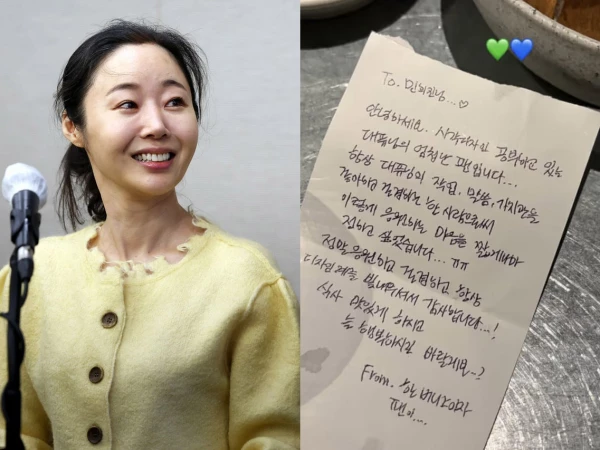 To. 민희진님...♡
안녕하세요. 시각디자인 공부하고 있는
대표님의 엄청난 팬입니다...
항상 대표님의 작업, 말씀, 가치관을
좋아하고 존경하는 한 사람으로써
이렇게 응원하는 마음을 짧게나마
전하고 싶었습니다... ㅠㅠ
정말 응원하고 존경하고 항상
디자인계를 빛내주셔서 감사합니다...!
식사 맛있게 하시고
늘 행복하시길 바랄게요..?
From. 한 버니이자
팬이...